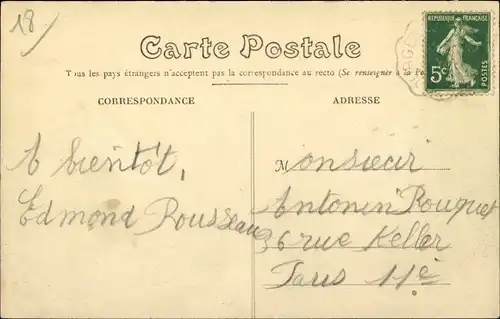 18/
RÉPUBLIQUE FRANÇAISE
5c
POSTES
Carte Postale
Tous les pays étrangers n'acceptent pas la correspondance au recto (Se renseigner à la
CORRESPONDANCE
ADRESSE
A bientôt,
Edmond Rousseau
Monsieur
Antonin Rouquet
36 rue Keller
Paris 11è